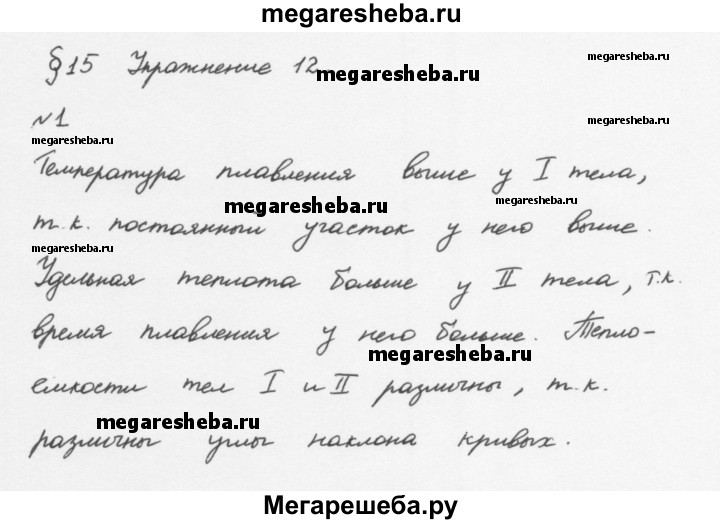 megaresheba.ru
§15 Упражнение 12
megaresheba.ru
megaresheba.ru
№1
megaresheba.ru
megaresheba.ru
Температура плавления выше у I тела,
megaresheba.ru
megaresheba.ru
т.к. постоянный участок у него выше.
megaresheba.ru
Удельная теплота больше у II тела, т.к.
время плавления у него больше. Тепло-
megaresheba.ru
емкости тел I и II различны, т.к.
megaresheba.ru
различны углы наклона кривых.
Мегарешеба.ру